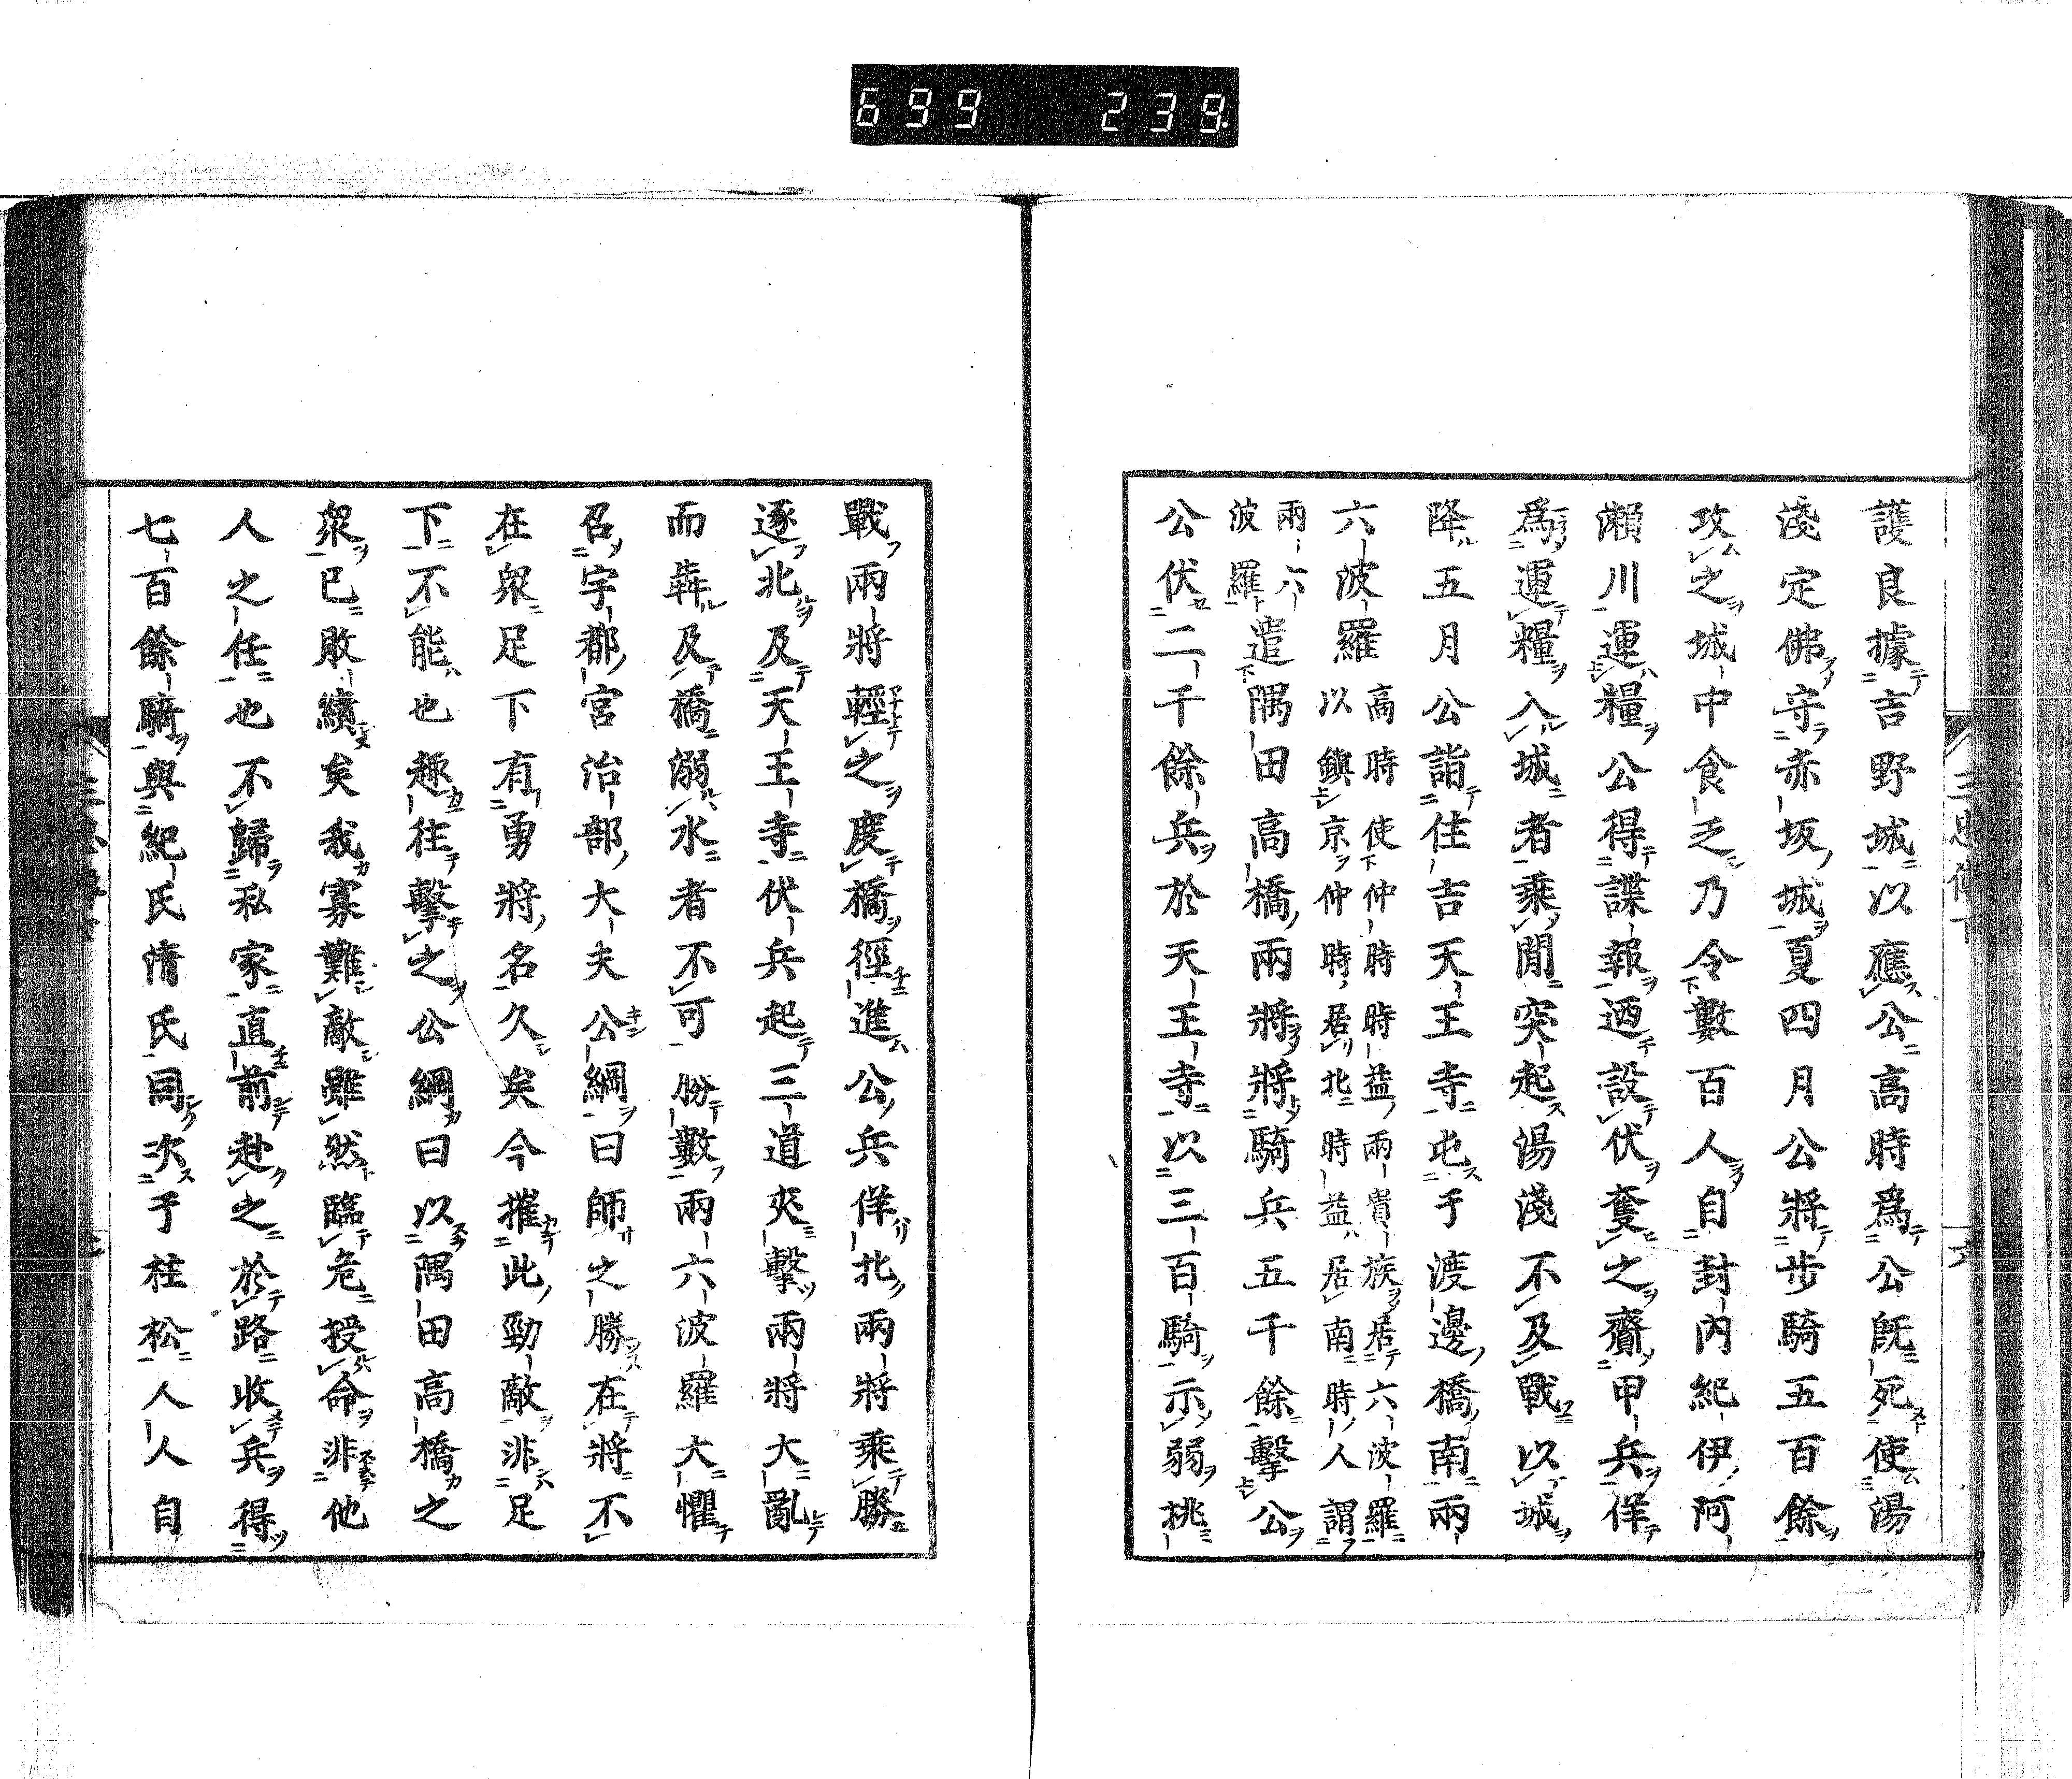 699 239
護良據吉野城以應公高時爲公既死使湯
淺定佛守赤坂城夏四月公將步騎五百餘
攻之城中食乏乃令數百人自封內紀伊阿
瀨川運糧公得諜報迺設伏奪之齎甲兵佯
爲運糧入城者乘閒突起湯淺不及戰以城
降五月公詣住吉天王寺屯于渡邊橋南兩
六波羅
高時使仲時時益兩貴族居六波羅
以鎭京仲時居北時益居南時人謂
兩六
波羅
遣隅田高橋兩將將騎兵五千餘擊公
公伏二千餘兵於天王寺以三百騎示弱挑
戰兩將輕之度橋徑進公兵佯北兩將乘勝
逐北及天王寺伏兵起三道夾擊兩將大亂
而犇及橋溺水者不可勝數兩六波羅大懼
召宇都宮治部大夫公綱曰師之勝在將不
在衆足下有勇將名久矣今摧此勁敵非足
下不能也趣往擊之公綱曰以隅田高橋之
衆已敗績矣我寡難敵雖然臨危授命非他
人之任也不歸私家直前赴之於路收兵得
七百餘騎與紀氏淸氏同次于柱松人人自